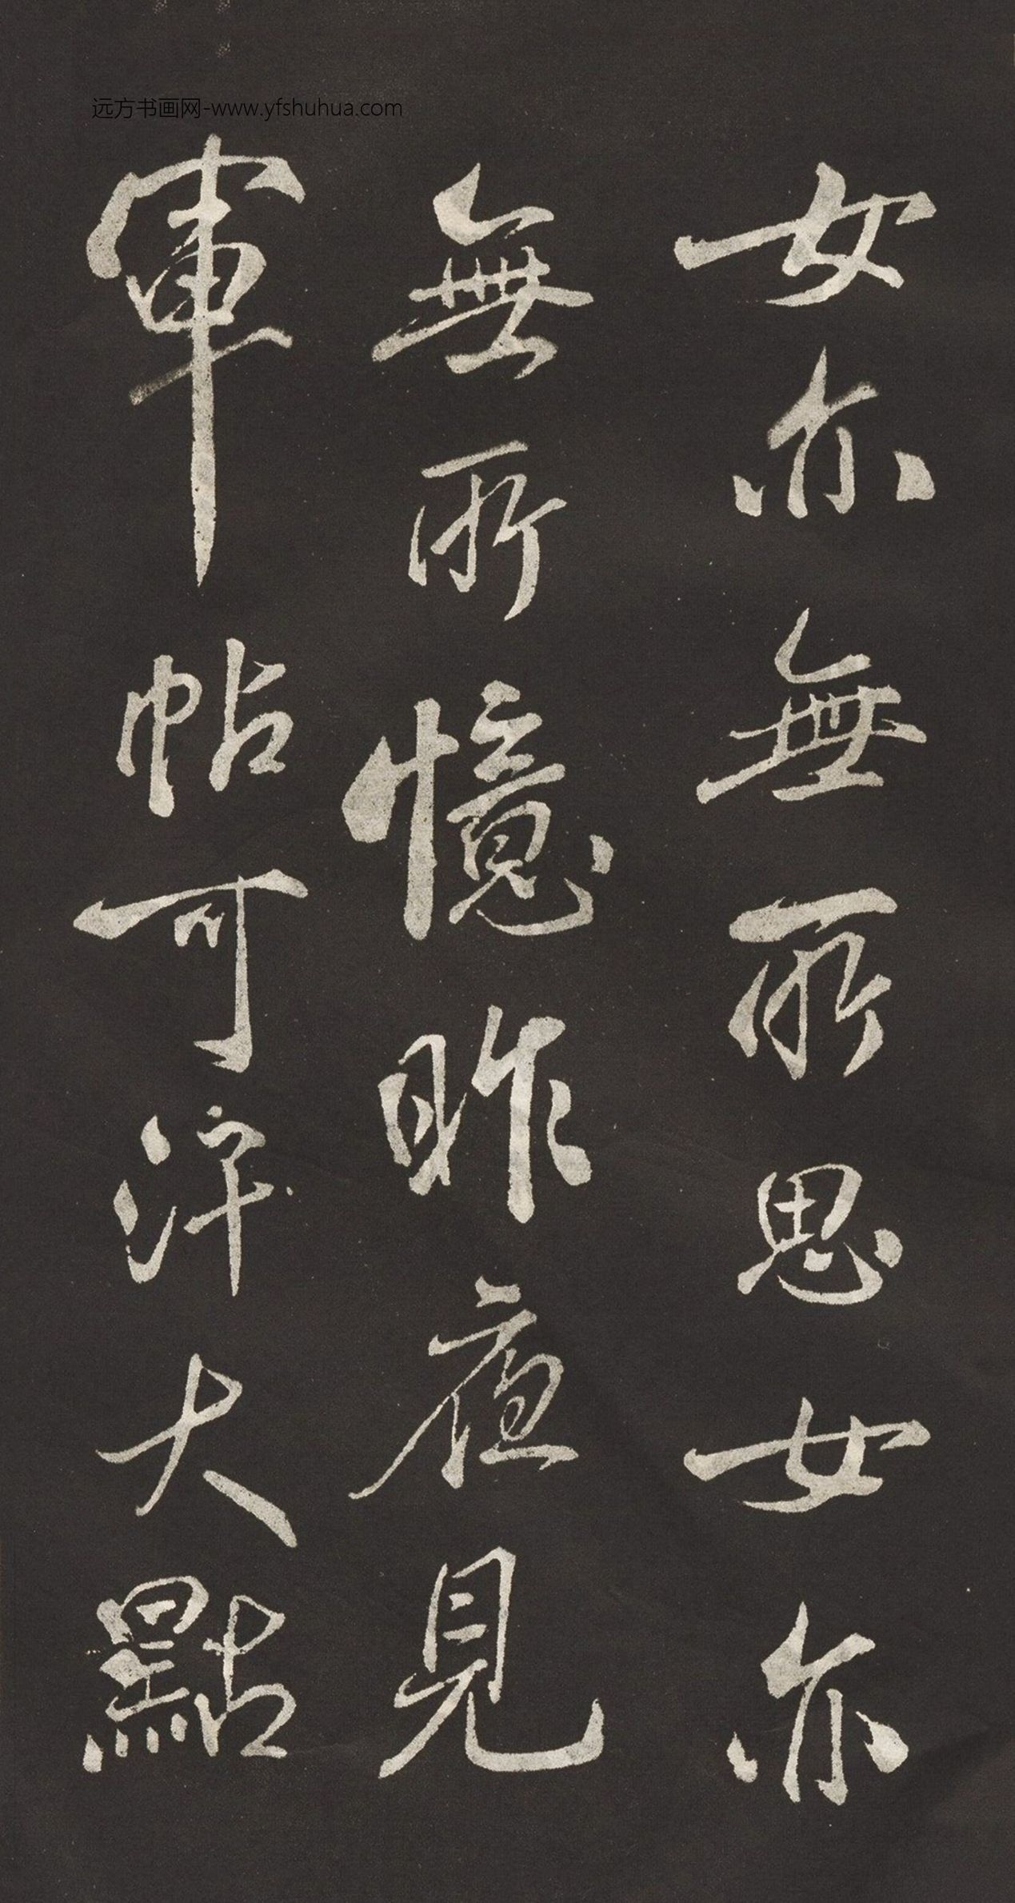 远方书画网-www.yfshuhua.com
女亦無所思女亦
無所憶昨夜見
軍帖可汗大點